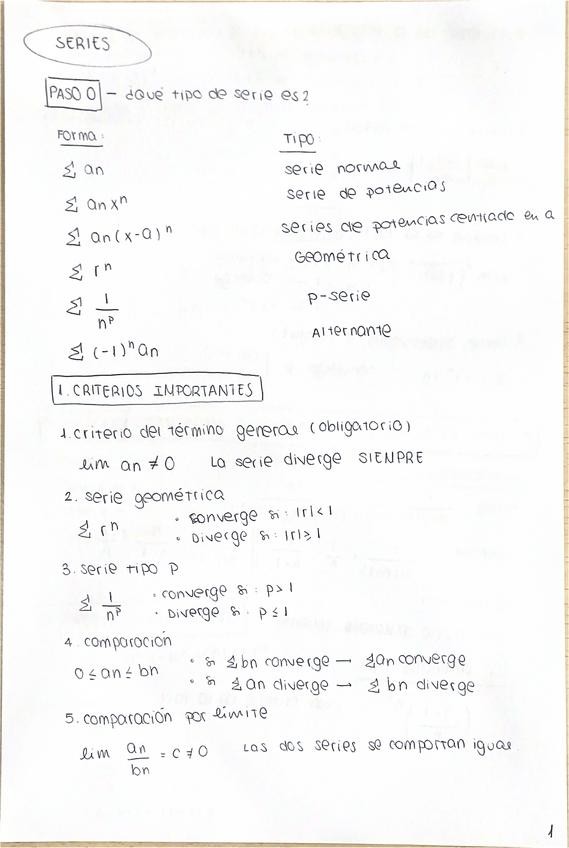 SERIES
PASO 0 — ¿Qué tipo de serie es?
Forma: Tipo:
∑ an serie normal
∑ an xⁿ serie de potencias
∑ an (x-a)ⁿ series de potencias centrado en a
∑ rⁿ Geométrica
∑ 1/nᵖ p-serie
∑ (-1)ⁿ an Alternante
1. CRITERIOS IMPORTANTES
1. criterio del término general (obligatorio)
lim an ≠ 0 La serie diverge SIENPRE
2. serie geométrica
∑ rⁿ · converge si: |r| < 1
· Diverge si: |r| ≥ 1
3. serie tipo p
∑ 1/nᵖ · converge si: p > 1
· Diverge si: p ≤ 1
4. comparación
0 ≤ an ≤ bn · si ∑ bn converge — ∑ an converge
· si ∑ an diverge — ∑ bn diverge
5. comparación por límite
lim an/bn = c ≠ 0 Las dos series se comportan igual.
1